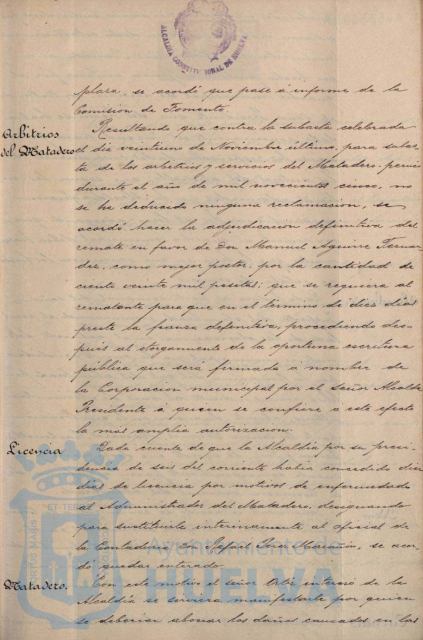 ALCALDIA CONSTITUCIONAL DE HUELVA
plaza, se acordó que pase á informe de la
Comision de Fomento.
Arbitrios del Matadero
Resultando que contra la subasta celebrada
el dia veintiuno de Noviembre último, para subas-
ta de los arbitrios y servicios del Matadero
durante el año de mil novecientos cinco, no
se ha deducido ninguna reclamacion, se
acordó hacer la adjudicacion definitiva del
remate en favor de Don Manuel Aguirre Fernan-
dez, como mejor postor, por la cantidad de
ciento veinte mil pesetas; que se requiera al
rematante para que en el término de diez dias
preste la fianza definitiva, procediendo des-
pués al otorgamiento de la oportuna escritura
pública que será firmada á nombre de
la Corporacion municipal por el Señor Alcalde
Presidente á quien se confiere a este efecto
la más amplia autorizacion.
Licencia
Dada cuenta de que la Alcaldia por su provi-
dencia de seis del corriente habia concedido diez
dias de licencia por motivos de enfermedad
al Administrador del Matadero, designando
para sustituirle interinamente al oficial de
la Contaduria se acor-
dó quedar enterado.
Matadero.
Con este motivo el señor interesó de la
Alcaldia se sirviera manifestarle por quien
se deberian abonar los daños causados en las
Ayuntamiento de
HUELVA